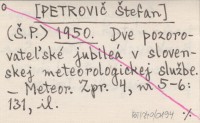 [PETROVIČ Štefan]
(Š.P.) 1950. Dve pozoro-
vateľské jubileá v sloven-
skej meteorologickej službe.
– Meteor. Zpr. 4, № 5-6:
131, il.